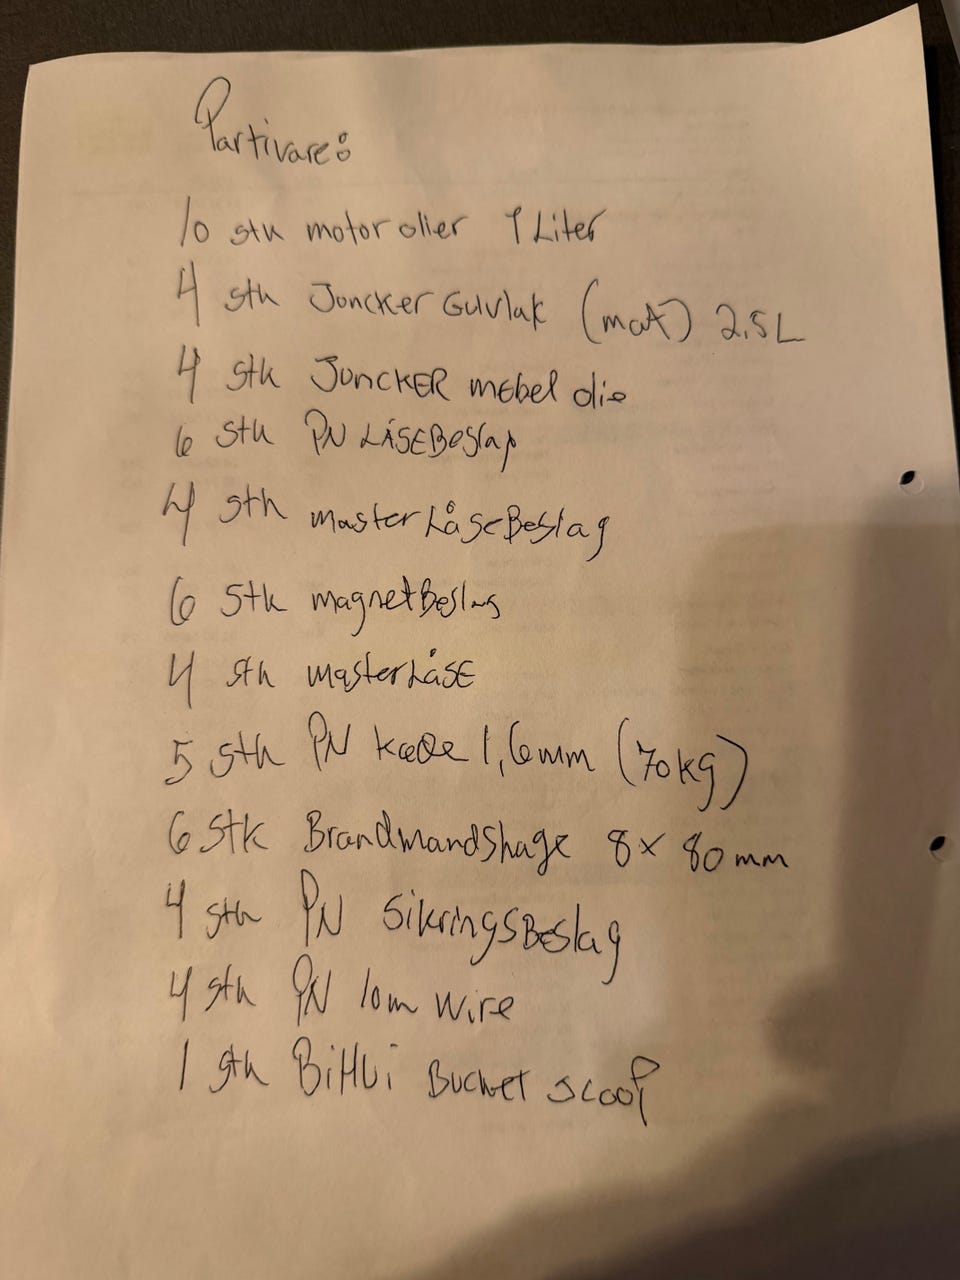 Partivare:
10 stk motorolier 1 Liter
4 stk Joncker Gulvlak (mat) 2.5L
4 stk JUNCKER mebel olie
6 stk PN LÅSEBeslag
4 stk master LåseBeslag
6 stk magnetBeslag
4 stk masterLåse
5 stk PN kæde 1,6mm (70kg)
6 stk Brandmandshage 8x80mm
4 stk PN SikringsBeslag
4 stk PN 10m wire
1 stk BiHUi Bucket scoop